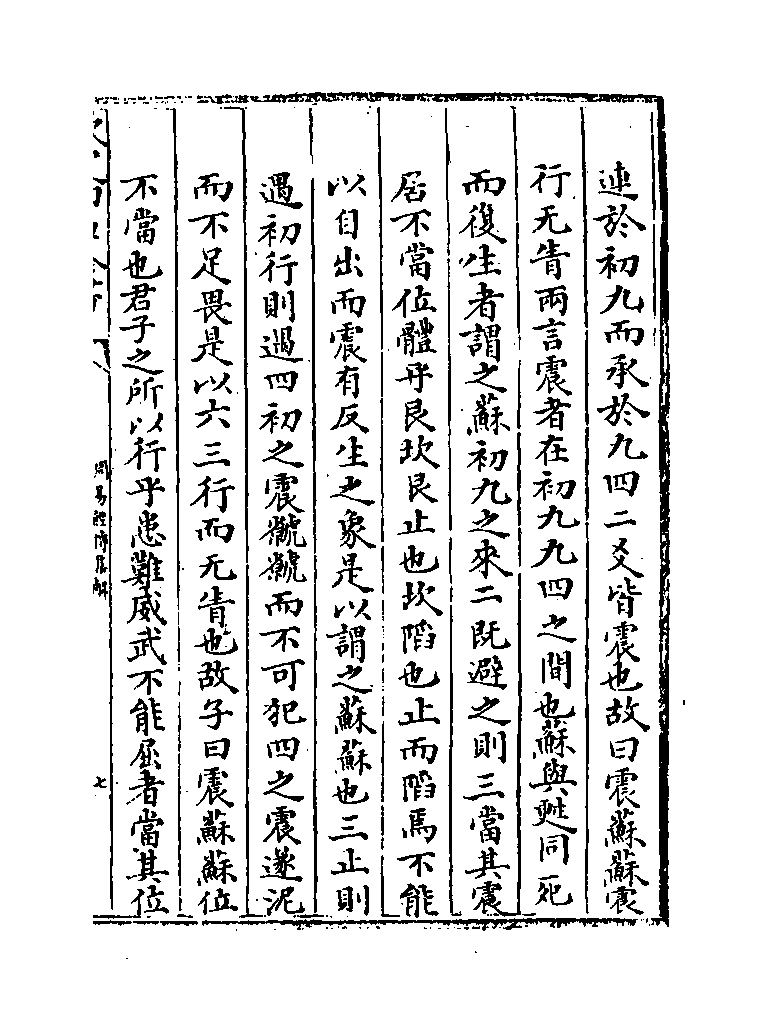 連於初九而承於九四二爻皆震也故曰震蘇蘇震
行无眚兩言震者在初九九四之間也蘇與甦同死
而復生者謂之蘇初九之來二既避之則三當其震
居不當位體乎艮坎艮止也坎陷也止而陷焉不能
以自出而震有反生之象是以謂之蘇蘇也三止則
遇初行則遇四初之震虩虩而不可犯四之震遂泥
而不足畏是以六三行而无眚也故子曰震蘇蘇位
不當也君子之所以行乎患難威武不能屈者當其位
周易經傳集解
七